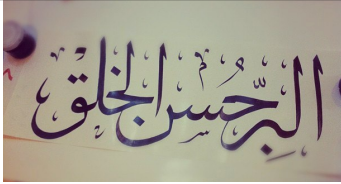 البِرُّ حُسن الخلق